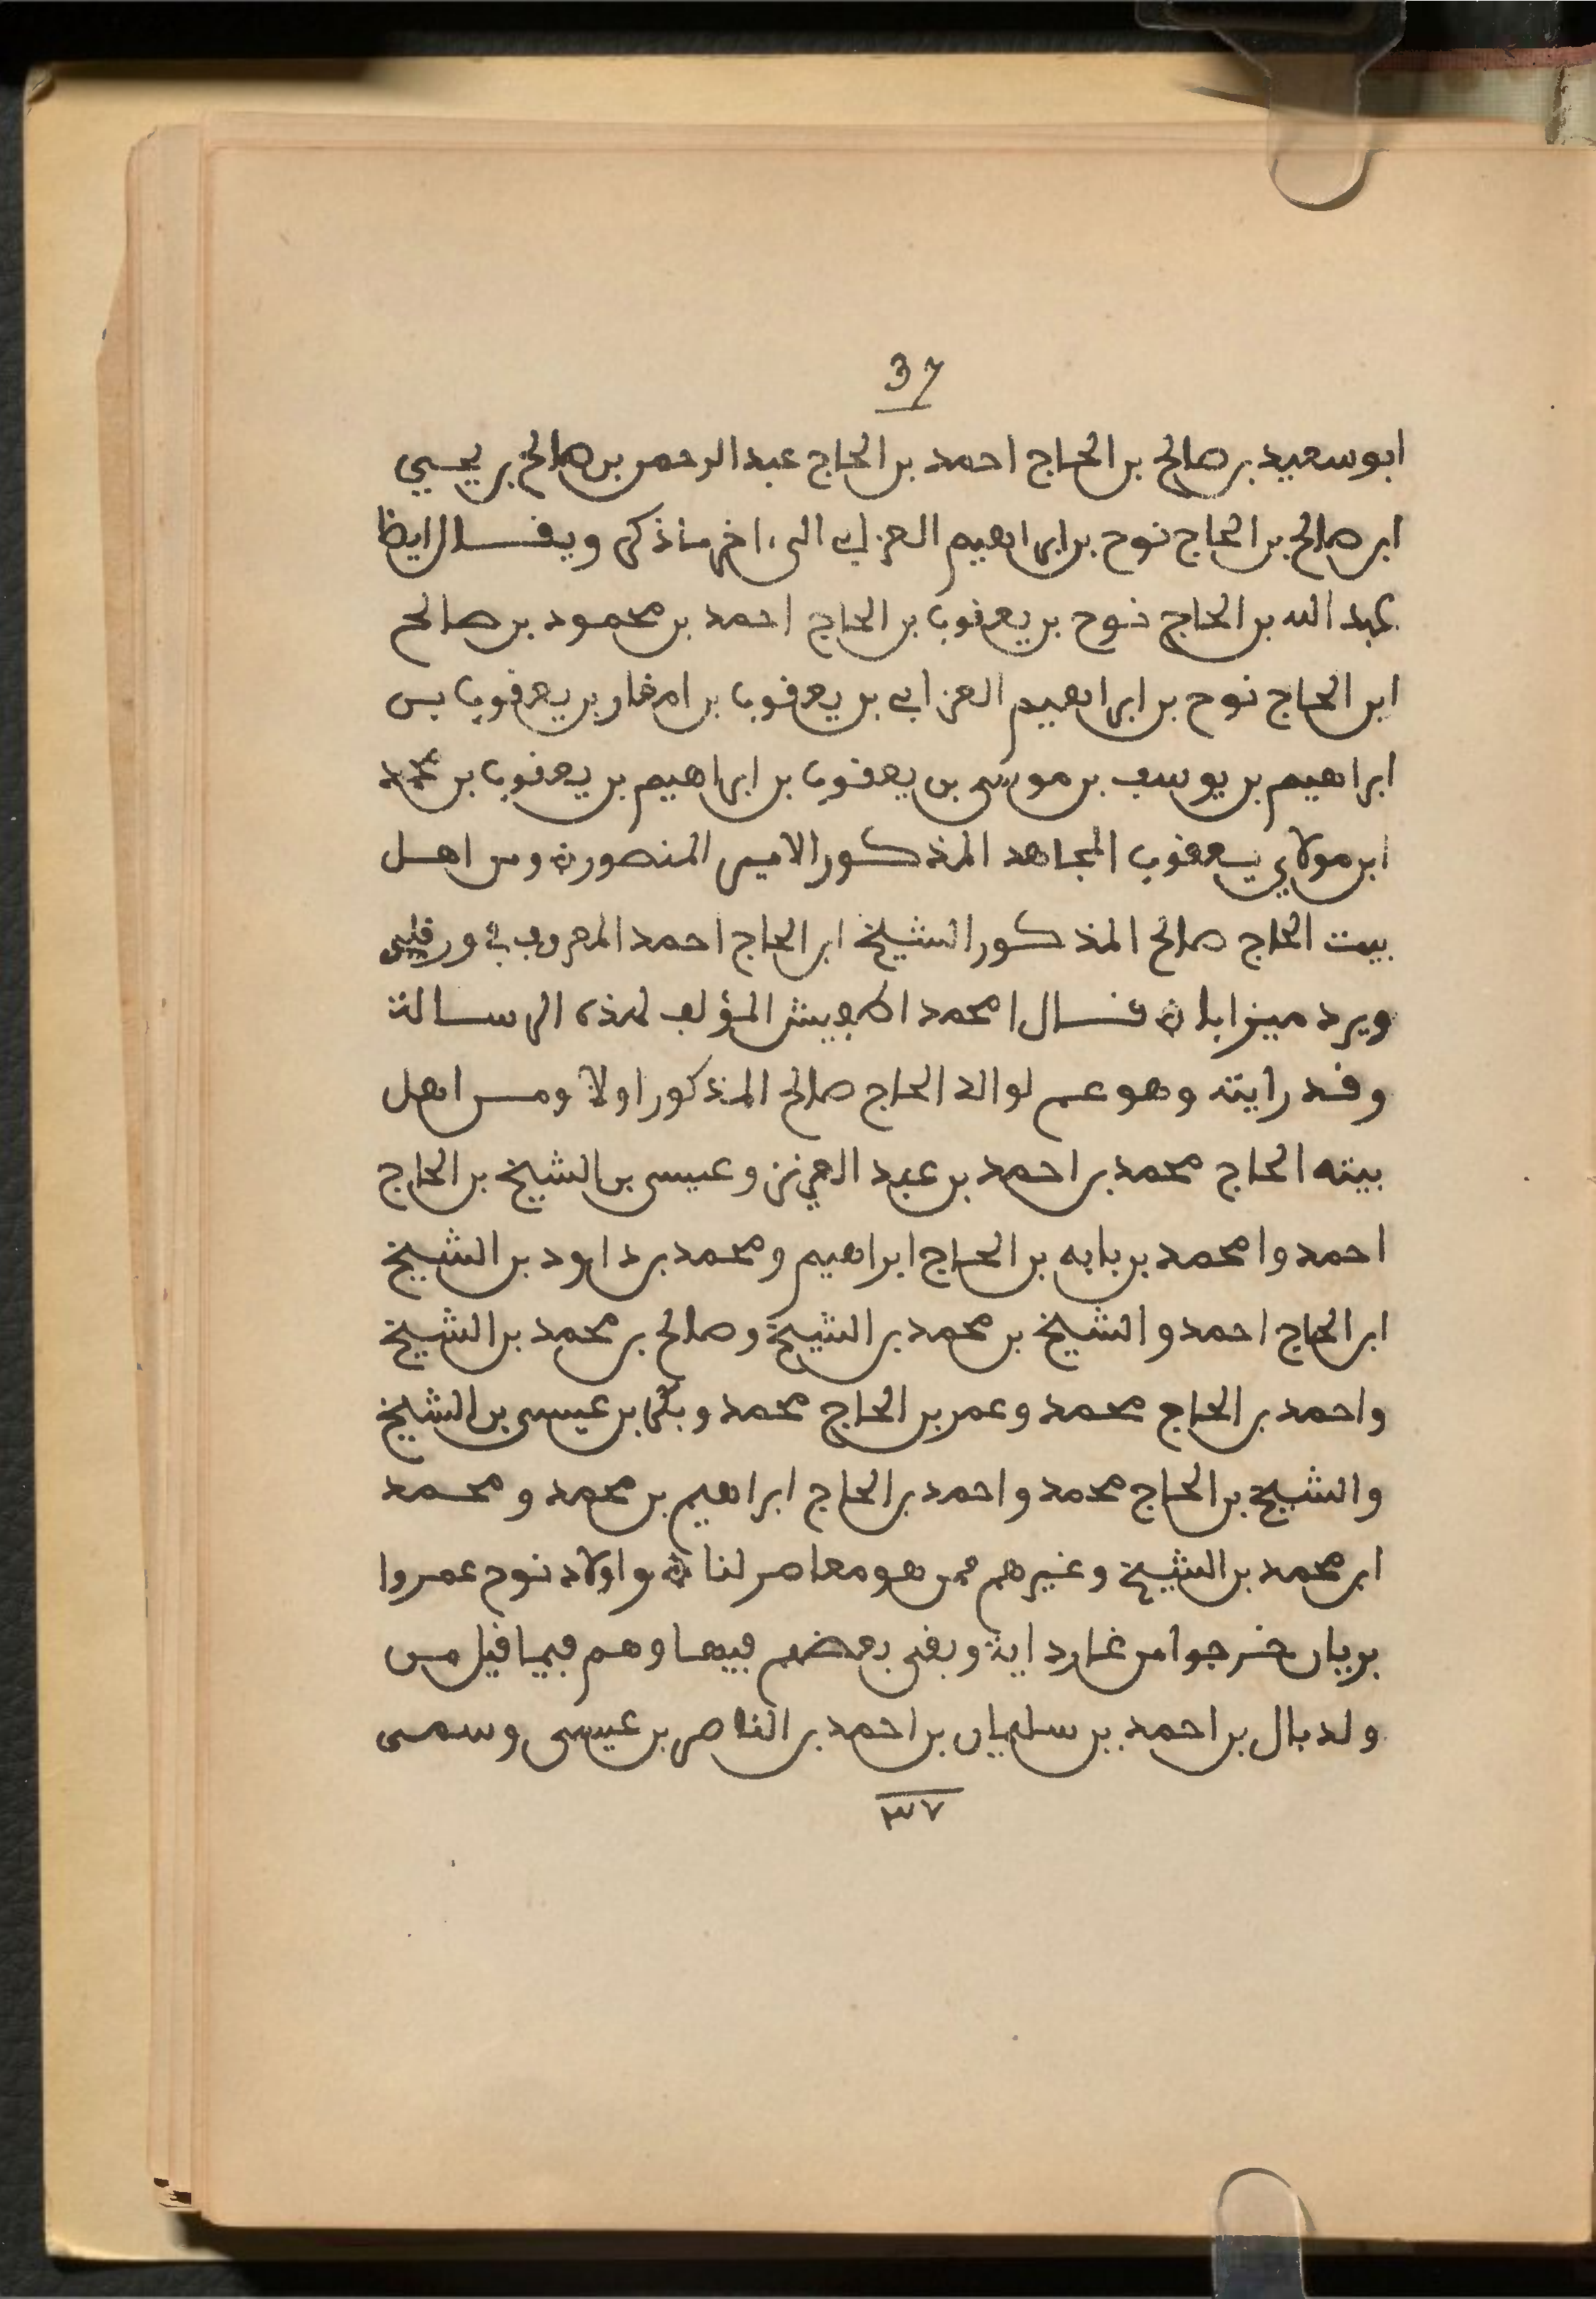 37
ابو سعيد بن صالح بن الحاج احمد بن الحاج عبد الرحمن بن صالح بن يحيي
ابن صالح بن الحاج نوح بن ابراهيم العزابي الى ءاخر ما ذكر ويقال ايظا
عبد الله بن الحاج نوح بن يعقوب بن الحاج احمد بن محمود بن صالح
ابن الحاج نوح بن ابراهيم العزابي بن يعقوب بن امغار بن يعقوب بن
ابراهيم بن يوسف بن موسى بن يعقوب بن ابراهيم بن يعقوب بن محمد
ابن مولاي يعقوب المجاهد المذكور الامير المنصور ه ومن اهل
بيت الحاج صالح المذكور الشيخ ابن الحاج احمد المعروف في ورقلى
ويرد ميزابا ه قال امحمد اطفيش المؤلف لهذه الرسالة
وقد رايته وهو عم لوالد الحاج صالح المذكور اولا ومن اهل
بيته الحاج محمد بن احمد بن عبد العزيز وعيسى بن الشيخ بن الحاج
احمد وامحمد بن بابه بن الحاج ابراهيم ومحمد بن داود بن الشيخ
ابن الحاج احمد والشيخ بن محمد بن الشيخ وصالح بن محمد بن الشيخ
واحمد بن الحاج محمد وعمر بن الحاج محمد وبكر بن عيسى بن الشيخ
والشيخ بن الحاج محمد واحمد بن الحاج ابراهيم بن محمد ومحمد
ابن محمد بن الشيخ وغيرهم ممن هو معاصر لنا ه واولاد نوح عمروا
بريان خرجوا من غارداية وبقى بعضهم فيها وهم فيما قيل من
ولد بال بن احمد بن سليمان بن احمد بن الناصر بن عيسى وسمى
٣٧